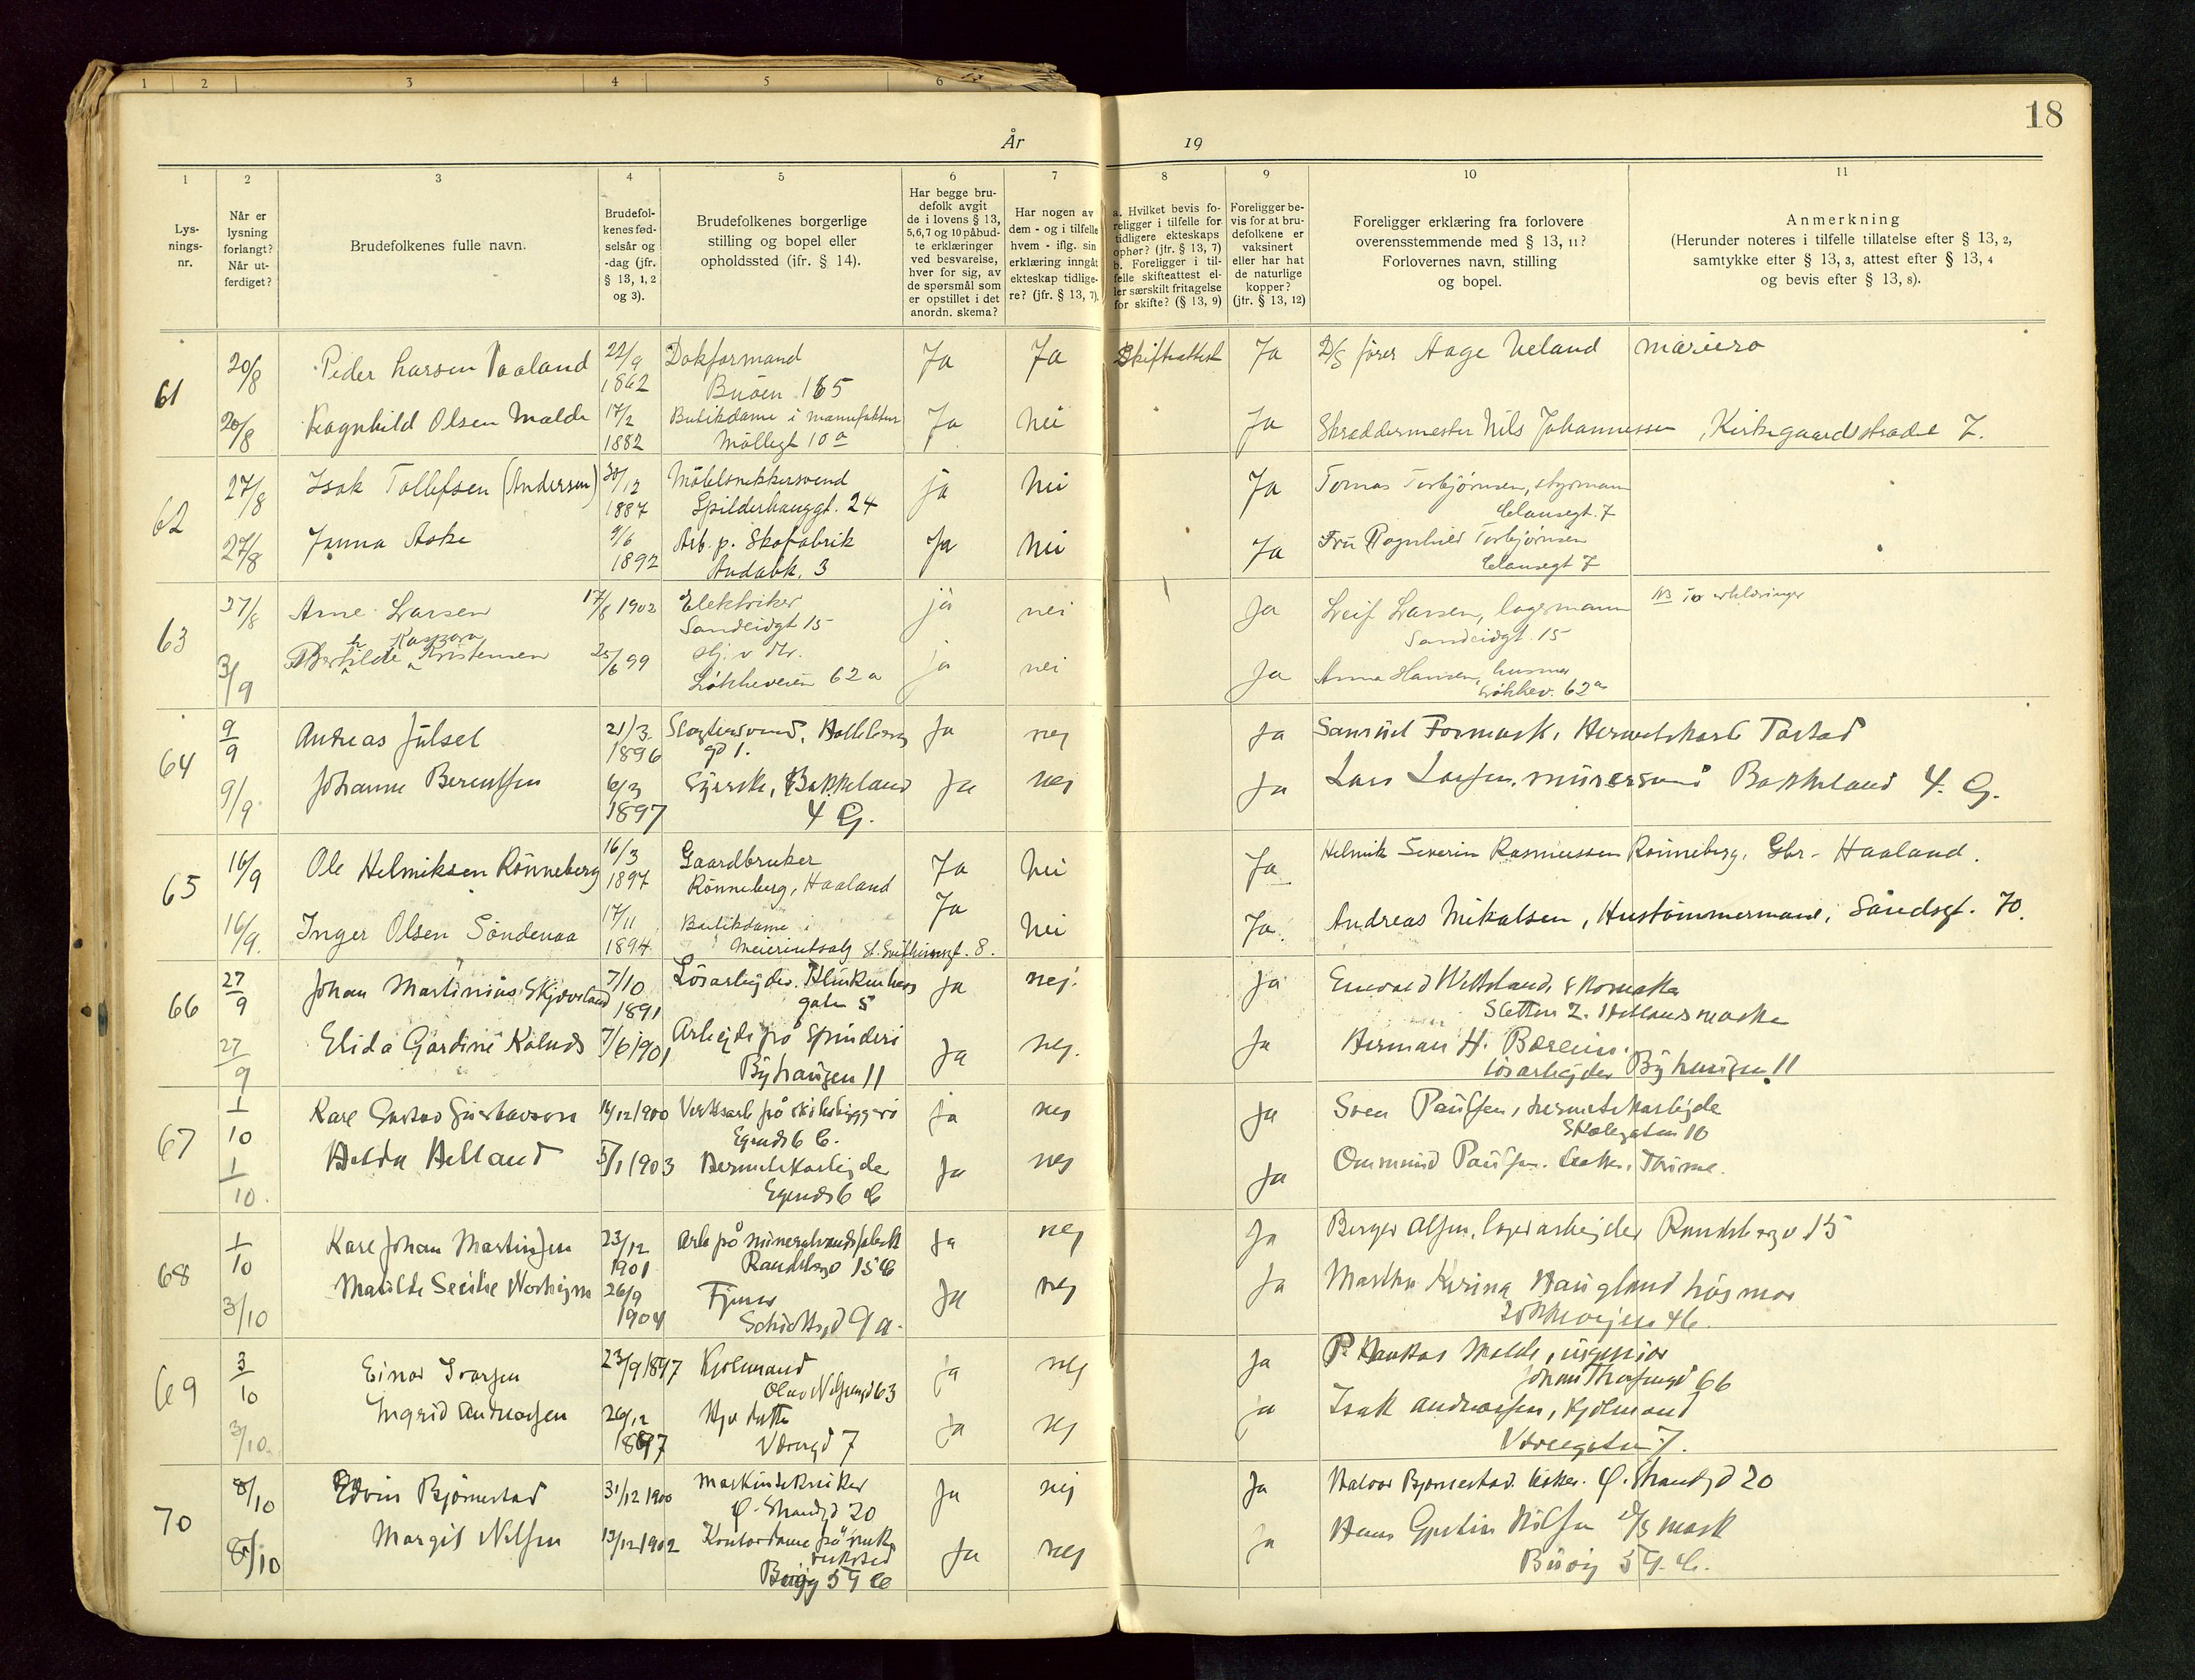 1 2 3 4 5 6
18
År 19
1 2 3 4 5 6 7 8 9 10 11
Lys-
nings-
nr.
Når er
lysning
forlangt?
Når ut-
ferdiget?
Brudefolkenes fulle navn.
Brudefol-
kenes fød-
selsår og
-dag (jfr.
§ 13, 1, 2
og 3).
Brudefolkenes borgerlige
stilling og bopel eller
opholdssted (jfr. § 14).
Har begge bru-
defolk avgit
de i lovens § 13,
5,6,7 og 10 påbud-
te erklæringer
ved besvarelse,
hver for sig, av
de spørsmål som
er opstillet i det
anordn. skema?
Har nogen av
dem - og i tilfelle
hvem - iflg. sin
erklæring inngåt
ekteskap tidlige-
re? (jfr. § 13, 7).
a. Hvilket bevis fo-
religger i tilfelle for
tidligere ekteskaps
ophør? (jfr. § 13, 7)
b. Foreligger i til-
felle skifteattest el-
ler særskilt fritagelse
for skifte? (§ 13, 9)
Foreligger be-
vis for at bru-
defolkene er
vaksinert
eller har hat
de naturlige
kopper?
(jfr. § 13, 12)
Foreligger erklæring fra forlovere
overensstemmende med § 13, 11?
Forlovernes navn, stilling
og bopel.
Anmerkning
(Herunder noteres i tilfelle tillatelse efter § 13, 2,
samtykke efter § 13, 3, attest efter § 13, 4
og bevis efter § 13, 8).
61 20/8 Peder Larsen Vaaland 22/9 1862 Dokformand Ja Ja Skifteattest Ja D/S fører Aage Ueland Mariero
Buöen 165
20/8 Ragnhild Olsen Malde 17/2 1882 Butikdame i manufaktur Ja Nei Ja Skreddermester Nils Johannessen, Kirkegaardsstrædet 7.
Möllegt 10 a
62 27/8 Isak Tollefsen (Andersen) 30/12 1887 Möbelsnekkersvend ja Nei Ja Tomas Torbjørnsen, styrmann
Spilderhauggt. 24 Clausegt. 7
27/8 Janna Aske 9/6 1892 Arb. p. Skofabrik Ja Nei Ja Fru Ragnhild Torbjørnsen
Andabk. 3 Clausegt 7
63 27/8 Arne Larsen 17/8 1902 Elektriker ja nei Ja Leif Larsen, lagermann NB To erklæringer
Sandeidgt 15 Sandeidgt. 15
3/9 Kristensen 25/6 99 ja nei Ja Anna Hansen, husmor
Løkkeveien 62 a Løkkev. 62 a
64 9/9 Andreas Jülsel 21/3 1896 Ja nej Ja Samuel
gd 1.
9/9 Johanne Berentsen 6/3 1897 Syerske, Bakkeland Ja nej Ja Lars Larsen. mürersvend Bakkeland 4. G.
4 G.
65 16/9 Ole Helmiksen Rönneberg 16/3 1897 Gaardbruker Ja Nei Ja Helmik Severin Rasmussen Rönneberg, Gbr. Haaland.
Rönneberg, Haaland
16/9. Inger Olsen Söndenaa 17/11 1894 Butikdame i Ja Nei Ja. Andreas Mikalsen, Hustömmermand, Sandsgt. 70.
Meieriutsalg St. Svithunsgt. 8.
66 27/9 Johan Martinius Skjæveland 7/10 1891 Lösarbejder. Ja nej. ja Skomaker
gaten 5 Sletten 2.
27/9 Elida Gardine Kalnds 7/6 1901 Arbejde på Spinderi Ja nej. Ja Herman H.
Byhaugen 11 lösarbejder Byhaugen 11
67 1/10 Karl Gustav Gustavson 14/12 1900 ja nej Ja Sven Paulsen, hermetikarbejde
Egends 6 C. Skolegaten 10
1/10. Helda Helland 5/1 1903 Hermetikarbejder Ja nej Ja Ommund Paulsen. Time.
Egends 6 C
68 1/10 Karl Johan Martinsen 23/12 1901 Arb på mineralvandsfabrik Ja nej Ja Berger Olsen, lagerarbejder Randebergv 15
Randebergv 15 C
3/10 Matilde Secilie Norheim 26/9 1904 Ja nej Ja Martha Karina Haugland husmor
9 a. Løkkevejen 46.
69 3/10 Einar Ivarsen 23/9 1897 Kjölmand ja nej Ja P. Malde, ingeniør
Olav 63 66
3/10. Ingrid Andreassen 26/12 1897 Hjv datter Ja nej ja Isak Andreassen, Kjölmand
7 7.
70 8/10 Edvin Bjørnestad 31/12 1900 Maskintekniker Ja nej Ja Halvor Bjørnestad. Ö. Strandgd 20
Ö. Strandgd 20
8/10 Margit Nilsen 13/12 1902 Kontordame på mek. Ja nej Ja Hans Nilsen D/S mask
verksted Buöy 59. C.
Buøy 59 C